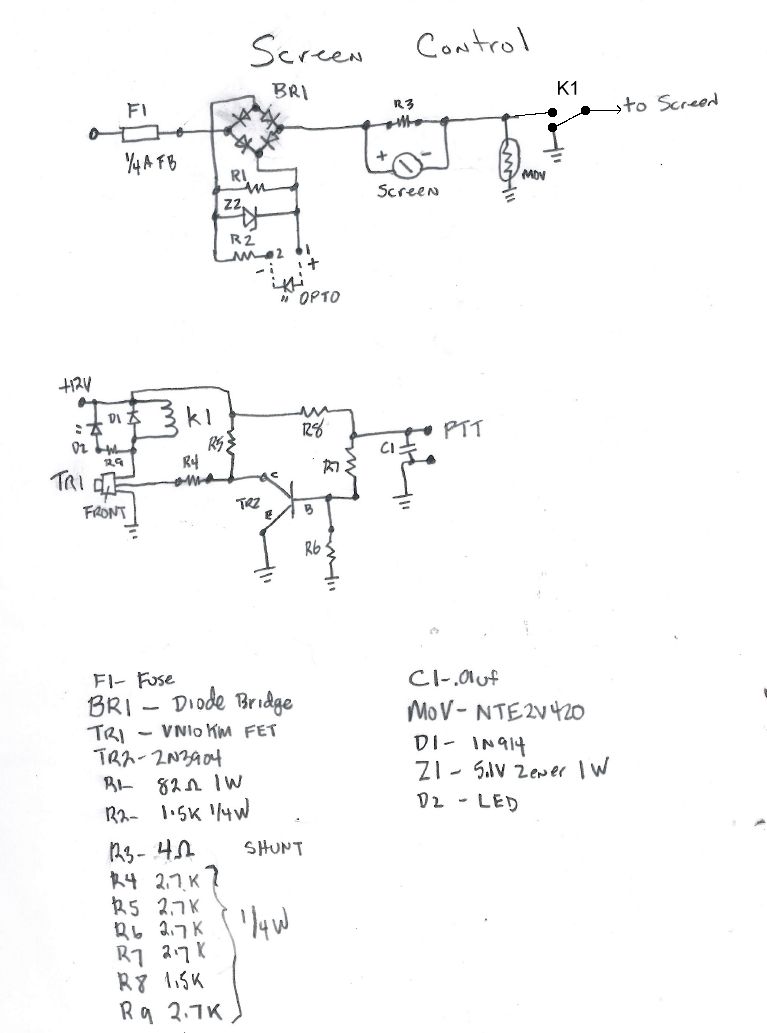 Screen Control
BR1
F1
1/4 A FB
R3
K1
to Screen
+ -
Screen
MOV
R1
Z2
R2
2 1
- +
OPTO
+12V
D1
K1
D2
R9
R5
R8
PTT
C1
R7
TR1
R4
FRONT
TR2
C
E
B
R6
F1- Fuse
BR1 - Diode Bridge
TR1 - VN10KM FET
TR2- 2N3904
R1- 82Ω 1W
R2- 1.5K 1/4W
R3- 4Ω SHUNT
R4 2.7K
R5 2.7K
R6 2.7K
R7 2.7K
R8 1.5K
R9 2.7K
1/4W
C1-.01uf
MOV- NTE2V420
D1- 1N914
Z1 - 5.1V Zener 1W
D2 - LED